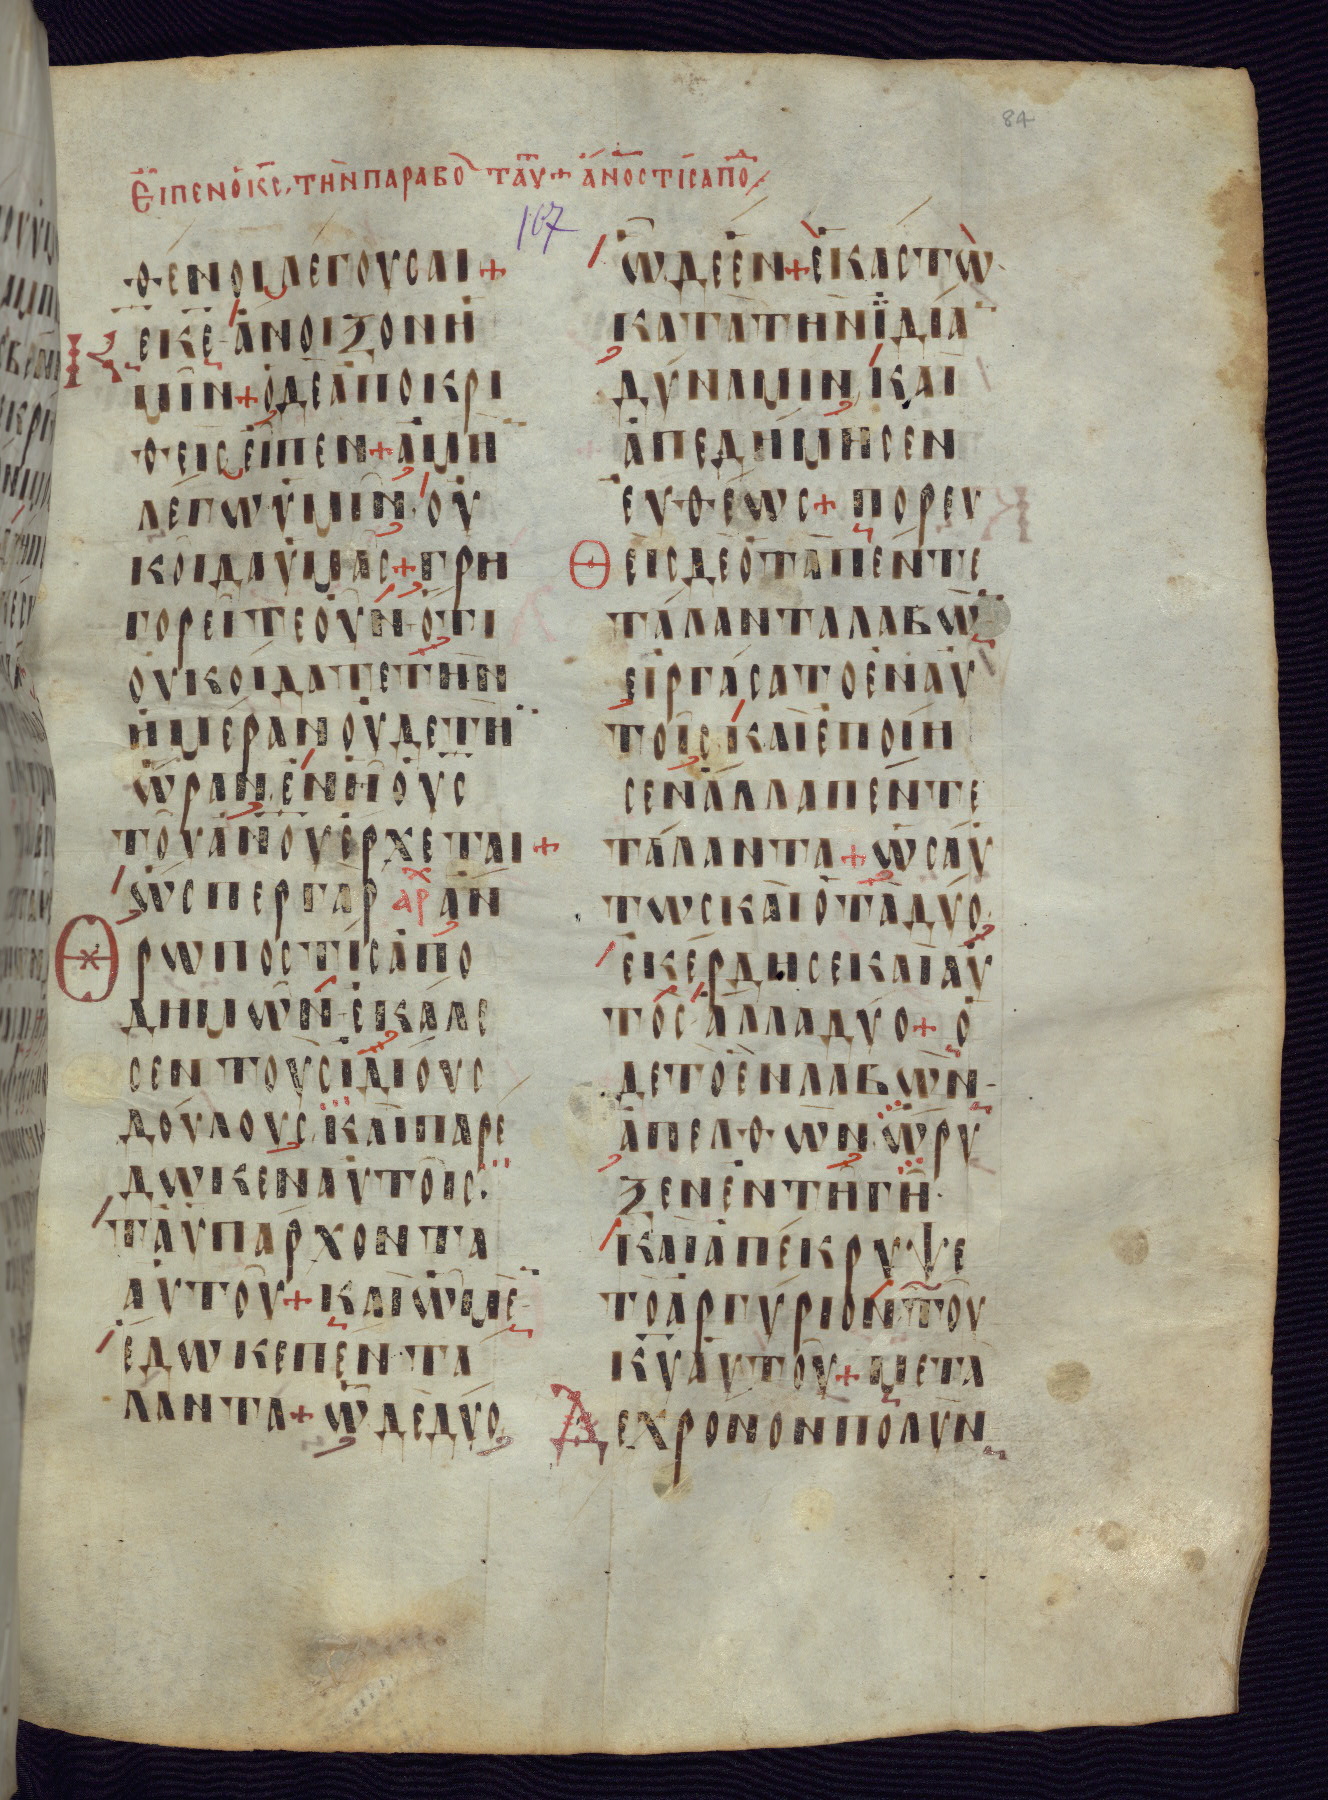 84
Εἶπεν ὁ κς, τὴν παραβο ταύ + ἀνος τίς ἀπο
167
θενοι λεγουσαι +
Κε κε ἀνοιξον ἡ
μῖν + ὁ δε ἀποκρι
θεις εἶπεν + ἀμη
λεγω ὑμῖν οὐ
κ οιδα ὑμας + γρη
γορεῖτε οὖν ὁτι
οὐκ οιδατε την
ἡμεραν οὐδε τη
ὡραν ἐν ἡ ὁ υς
του ἀνου ἐρχεται +
ὡσπερ γαρ αρχ ἀν
Θρωπος τις ἀπο
δημων ἐκαλε
σεν τους ἰδιους
δουλους, και παρε
δωκεν αὐτοις
τα ὑπαρχοντα
αὐτου + και ὡ με
ἐδωκε πεντα
λαντα + ὡ δε δυο
ὡ δε ἑν + ἑκαστω
κατα την ἰδια
δυναμιν, και
ἀπεδημησεν
ευθεως + πορευ
Θεις δε ὁ τα πεντε
ταλαντα λαβω
εἰργασατο ἐν αὐ
τοις, και ἐποιη
σεν ἀλλα πεντε
ταλαντα + ὡσαυ
τως και ὁ τα δυο
ἐκερδησε και αὐ
τος ἀλλα δυο + ὁ
δε το ἑν λαβων
ἀπελθων ὠρυ
ξεν ἐν τη γη
και ἀπεκρυψε
το ἀργυριον του
κυ αὐτου + μετα
Δε χρονον πολυν